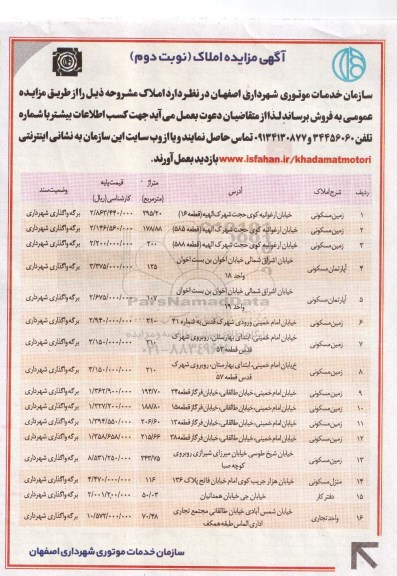 آگهی مزایده املاک (نوبت دوم)
سازمان خدمات موتوری شهرداری اصفهان در نظر دارد املاک مشروحه ذیل را از طریق مزایده
عمومی به فروش برساند لذا از متقاضیان دعوت بعمل می آید جهت کسب اطلاعات بیشتر با شماره
تلفن ۳۴۴۵۶۰۶۰ و ۰۹۱۳۴۱۳۰۸۷۷ تماس حاصل نمایند و یا از وب سایت این سازمان به نشانی اینترنتی
www.isfahan.ir/khadamatmotori بازدید بعمل آورند.
ردیف شرح املاک آدرس متراژ (مترمربع) قیمت پایه کارشناسی (ریال) وضعیت سند
۱ زمین مسکونی خیابان ارغوانیه کوی حجت شهرک الهیه (قطعه ۱۶) ۲۹۵/۲۰ ۲/۸۶۳/۴۴۰/۰۰۰ برگه واگذاری شهرداری
۲ زمین مسکونی خیابان ارغوانیه کوی حجت شهرک الهیه (قطعه ۵۸۵) ۱۷۸/۸۸ ۲/۱۴۶/۵۶۰/۰۰۰ برگه واگذاری شهرداری
۳ زمین مسکونی خیابان ارغوانیه کوی حجت شهرک الهیه (قطعه ۵۸۸) ۲۰۰ ۲/۲۰۰/۰۰۰/۰۰۰ برگه واگذاری شهرداری
۴ آپارتمان مسکونی خیابان اشراق شمالی خیابان اخوان بن بست اخوان واحد ۱۸ ۱۳۵ ۳/۳۷۵/۰۰۰/۰۰۰ برگه واگذاری شهرداری
۵ آپارتمان مسکونی خیابان اشراق شمالی خیابان اخوان بن بست اخوان واحد ۱۹ ۱۰۷ ۲/۶۷۵/۰۰۰/۰۰۰ برگه واگذاری شهرداری
۶ زمین مسکونی خیابان امام خمینی ورودی شهرک قدس به شماره ۴۱ ۲۱۰ ۲/۹۴۰/۰۰۰/۰۰۰ برگه واگذاری شهرداری
۷ زمین مسکونی خیابان امام خمینی، ابتدای بهارستان، روبروی شهرک قدس قطعه ۵۲ ۲۱۰ ۳/۱۵۰/۰۰۰/۰۰۰ برگه واگذاری شهرداری
۸ زمین مسکونی خیابان امام خمینی، ابتدای بهارستان، روبروی شهرک قدس قطعه ۵۷ ۲۱۰ ۳/۱۵۰/۰۰۰/۰۰۰ برگه واگذاری شهرداری
۹ زمین مسکونی خیابان امام خمینی، خیابان طالقانی، خیابان فرگاز قطعه ۲۴ ۱۹۴/۷۰ ۱/۳۶۲/۹۰۰/۰۰۰ برگه واگذاری شهرداری
۱۰ زمین مسکونی خیابان امام خمینی، خیابان طالقانی، خیابان فرگاز قطعه ۱۵ ۱۸۸/۸۰ ۱/۳۲۷/۲۰۰/۰۰۰ برگه واگذاری شهرداری
۱۱ زمین مسکونی خیابان امام خمینی، خیابان طالقانی، خیابان فرگاز قطعه ۱۲ ۲۰۶/۶۰ ۱/۳۹۴/۵۵۰/۰۰۰ برگه واگذاری شهرداری
۱۲ زمین مسکونی خیابان امام خمینی، خیابان طالقانی، خیابان فرگاز قطعه ۳۸ ۲۱۵/۶۶ ۱/۳۵۸/۶۵۸/۰۰۰ برگه واگذاری شهرداری
۱۳ زمین مسکونی خیابان شیخ طوسی خیابان میرزای شیرازی روبروی کوچه صبا ۲۴۳/۷۵ ۸/۵۳۱/۲۵۰/۰۰۰ برگه واگذاری شهرداری
۱۴ منزل مسکونی خیابان هزار جریب کوی امام خیابان فاتح پلاک ۱۳۶ ۱۱۶ ۴/۴۷۰/۰۰۰/۰۰۰ برگه واگذاری شهرداری
۱۵ دفتر کار خیابان جی خیابان همدانیان ۵۰/۰۳ ۲/۰۰۱/۲۰۰/۰۰۰ برگه واگذاری شهرداری
۱۶ واحد تجاری خیابان شمس آبادی خیابان طالقانی مجتمع تجاری اداری الماس طبقه همکف ۷۰/۴۸ ۱۰/۵۷۲/۰۰۰/۰۰۰ برگه واگذاری شهرداری
ParsNamadData
سازمان خدمات موتوری شهرداری اصفهان